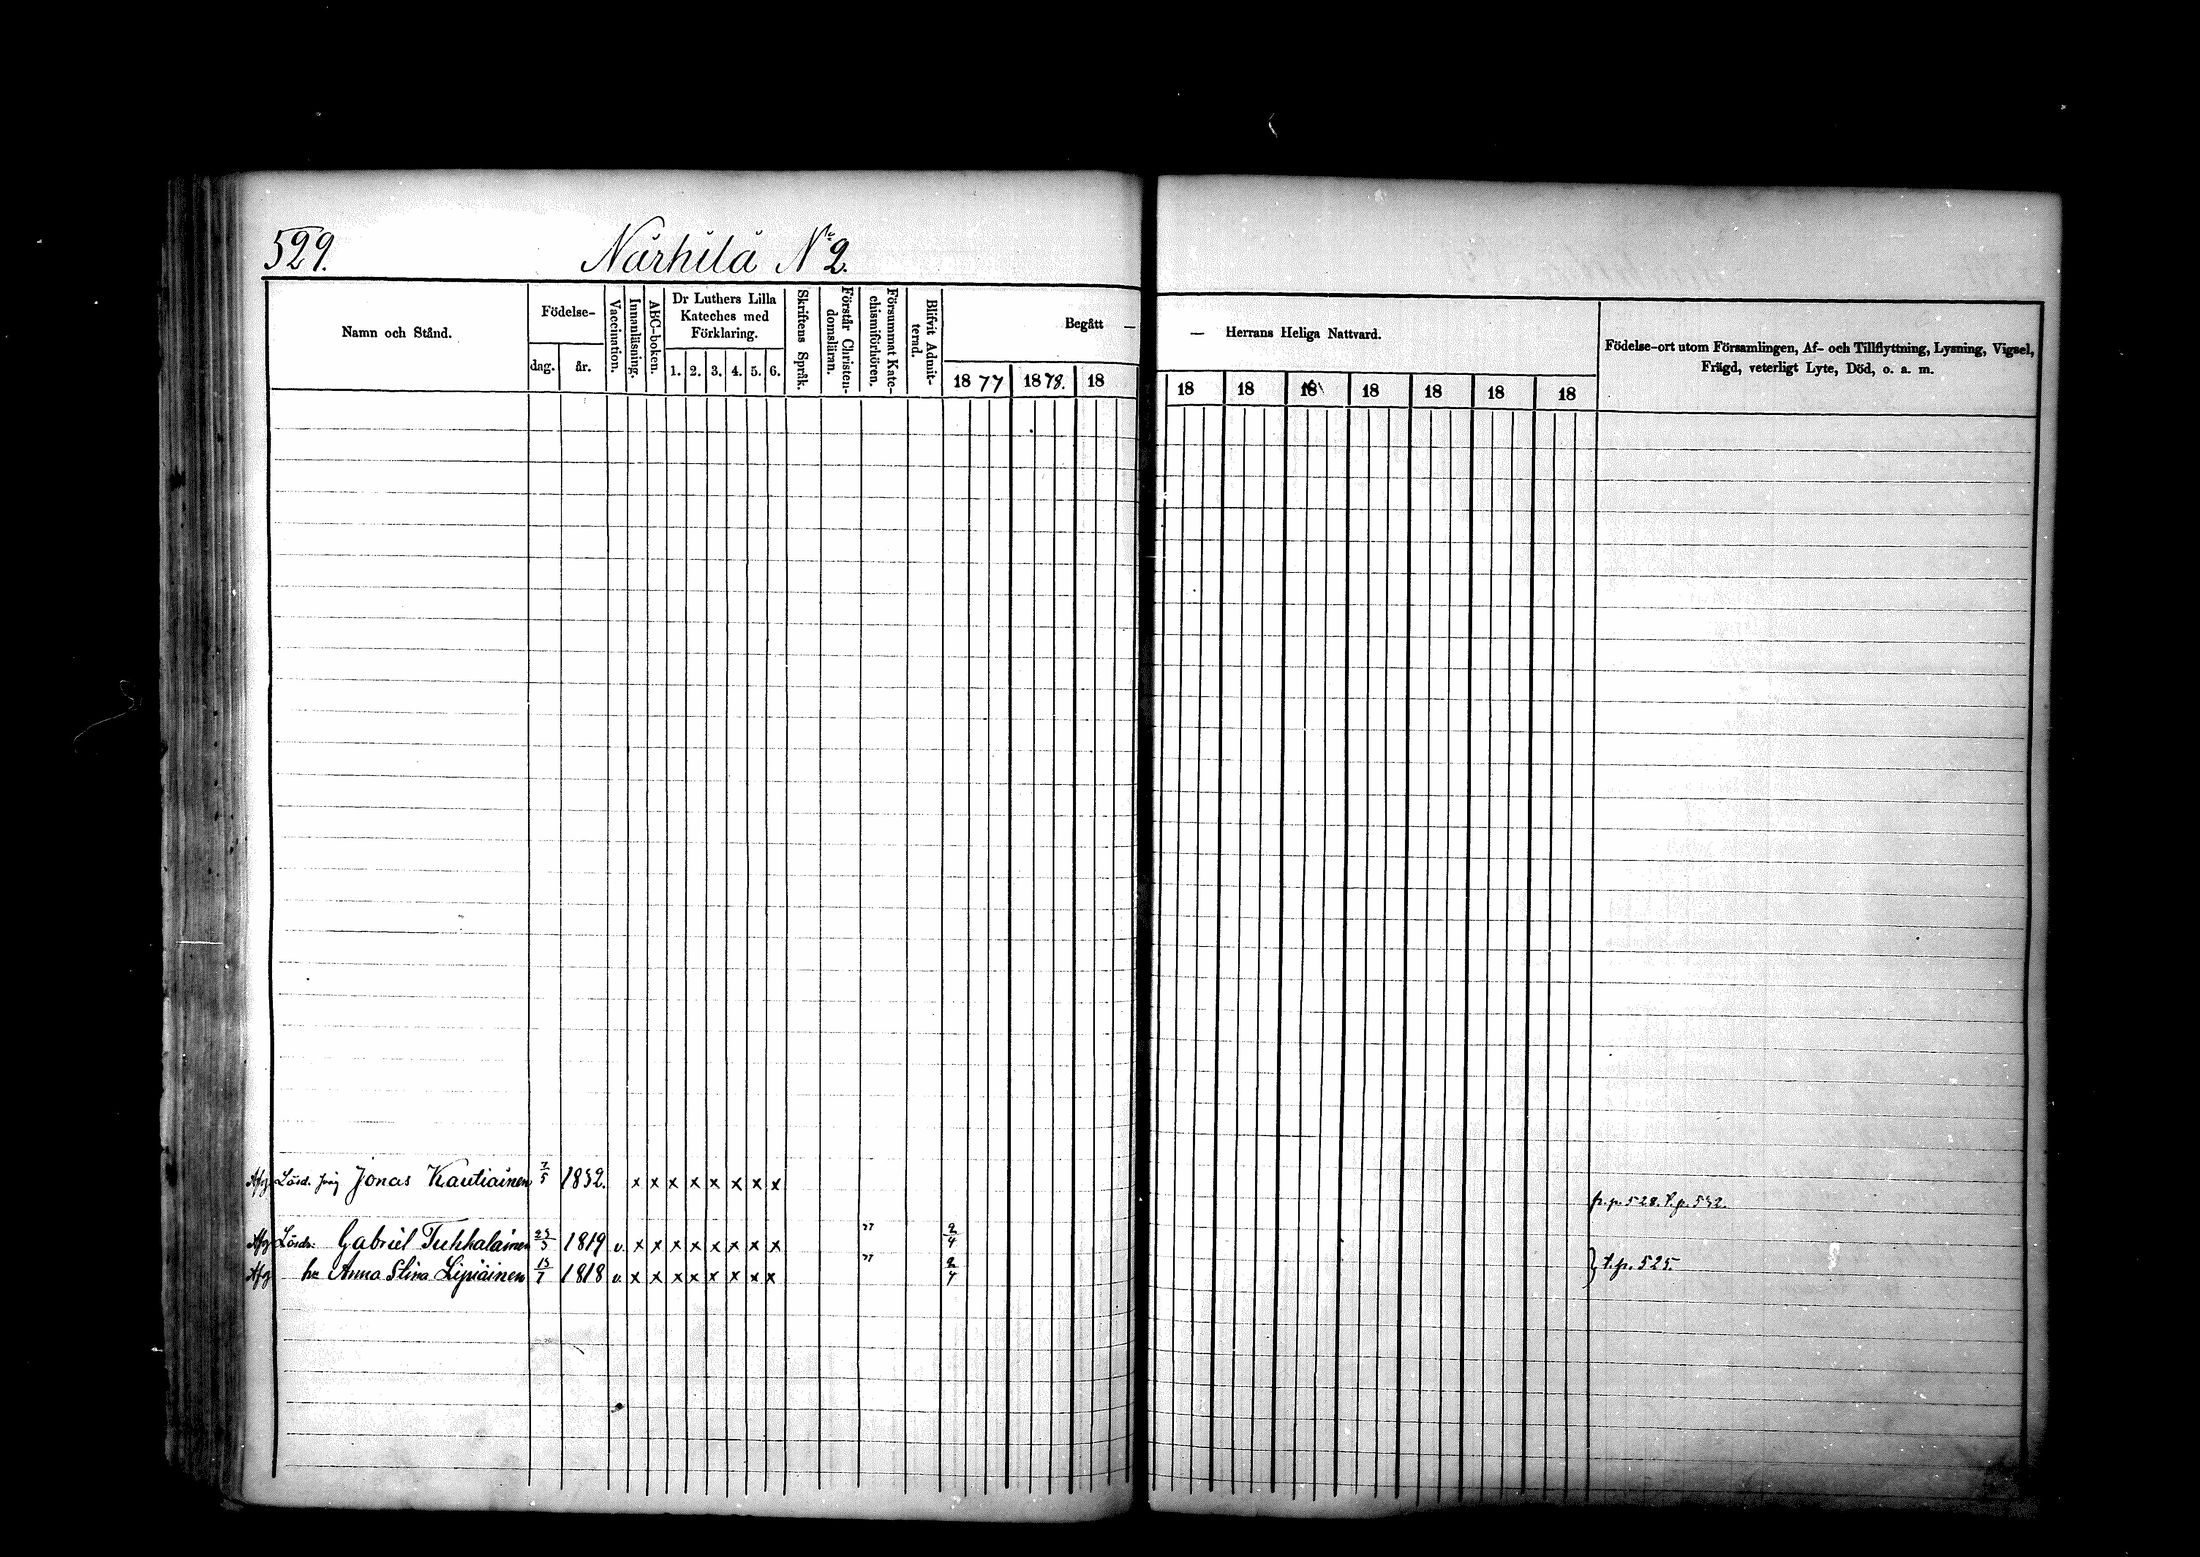 529.
Närhilä No 2.
Namn och Stånd.
Födelse-
dag.
år.
Vaccination.
Innanläsning.
ABC-boken.
Dr Luthers Lilla
Kateches med
Förklaring.
1. 2. 3. 4. 5. 6.
Skriftens Språk.
Förstår Christen-
domsläran.
Försummat Kate-
chismiförhören.
Blifvit Admit-
terad.
Begått —
— Herrans Heliga Nattvard.
1877 1878. 18
18 18 18 18 18 18 18
Födelse-ort utom Församlingen, Af- och Tillflyttning, Lysning, Vigsel,
Frägd, veterligt Lyte, Död, o. a. m.
Jonas Kautiainen 7/5 1832. x x x x x x x x
fr. p. 528. t. p. 532.
Lösdr: Gabriel Tuhkalainen 23/5 1819 v. x x x x x x x x " 2/4
hu Anna Stina Lipiäinen 15/7 1818 v. x x x x x x x x " 2/4
} t. p. 525.